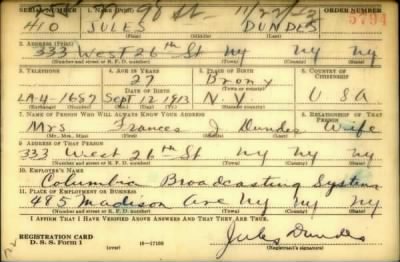 SERIAL NUMBER 1. NAME (Print) ORDER NUMBER
410 JULES DUNDES 5794
2. ADDRESS (Print)
333 West 26th St NY NY NY
(Number and street or R. F. D. number) (Town) (County) (State)
3. TELEPHONE 4. AGE IN YEARS 5. PLACE OF BIRTH 6. COUNTRY OF CITIZENSHIP
27 Bronx
LA-4-1687 Sept 12 1913 N.Y. USA
7. NAME OF PERSON WHO WILL ALWAYS KNOW YOUR ADDRESS 8. RELATIONSHIP OF THAT PERSON
Mrs Frances J Dundes Wife
(Mr., Mrs., Miss) (First) (Middle) (Last)
9. ADDRESS OF THAT PERSON
333 West 26th St NY NY NY
(Number and street or R. F. D. number) (Town) (County) (State)
10. EMPLOYER'S NAME
Columbia Broadcasting System
11. PLACE OF EMPLOYMENT OR BUSINESS
485 Madison Ave NY NY NY
(Number and street or R. F. D. number) (Town) (County) (State)
I AFFIRM THAT I HAVE VERIFIED ABOVE ANSWERS AND THAT THEY ARE TRUE.
REGISTRATION CARD
D. S. S. Form 1 (over) 16-17105 Jules Dundes
(Registrant's signature)